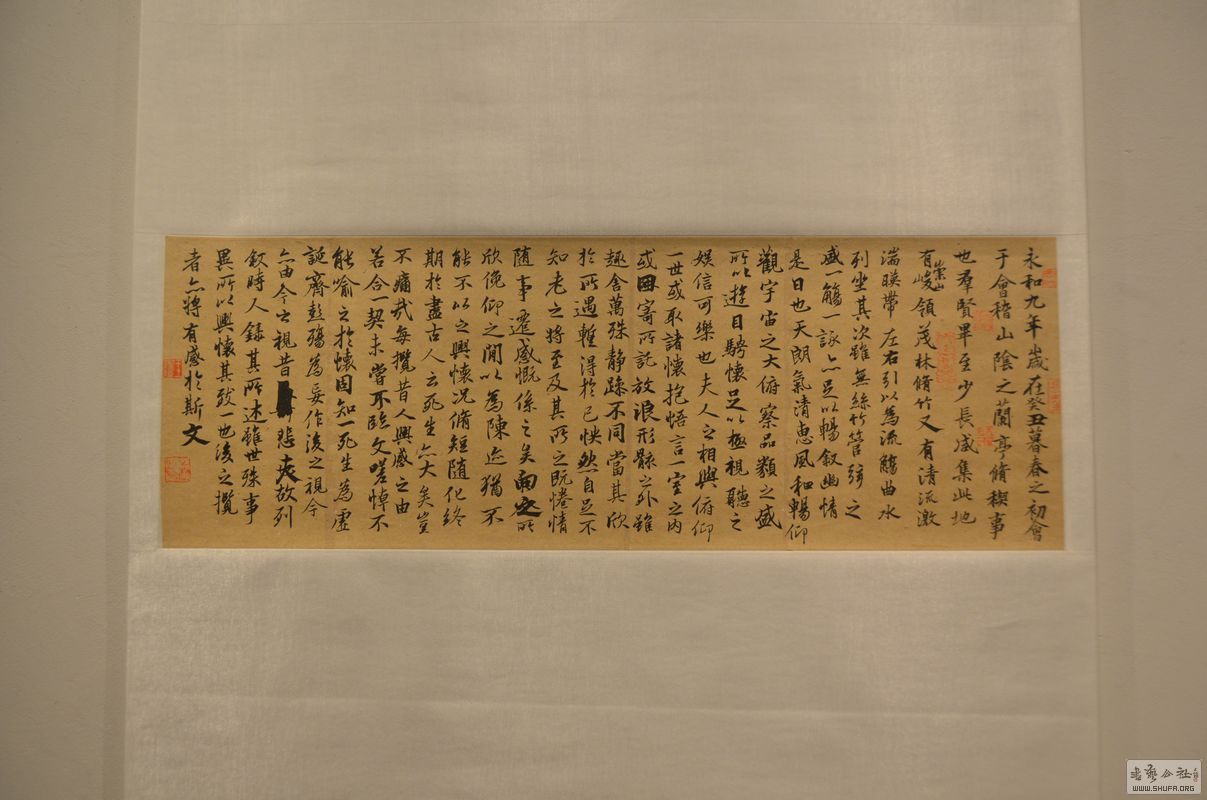 永和九年歲在癸丑暮春之初會
于會稽山陰之蘭亭脩稧事
也羣賢畢至少長咸集此地
有崇山峻領茂林脩竹又有清流激
湍暎帶左右引以為流觴曲水
列坐其次雖無絲竹管弦之
盛一觴一詠亦足以暢叙幽情
是日也天朗氣清惠風和暢仰
觀宇宙之大俯察品類之盛
所以遊目騁懷足以極視聽之
娛信可樂也夫人之相與俯仰
一世或取諸懷抱悟言一室之内
或因寄所託放浪形骸之外雖
趣舍萬殊静躁不同當其欣
於所遇蹔得於己怏然自足不
知老之將至及其所之既惓情
随事遷感慨係之矣向之所
欣俛仰之閒以為陳迹猶不
能不以之興懷況脩短随化終
期於盡古人云死生亦大矣豈
不痛哉每攬昔人興感之由
若合一契未嘗不臨文嗟悼不
能喻之於懷固知一死生為虛
誕齊彭殤為妄作後之視今
亦由今之視昔悲夫故列
叙時人錄其所述雖世殊事
異所以興懷其致一也後之攬
者亦將有感於斯文
書藝公社
WWW.SHUFA.ORG